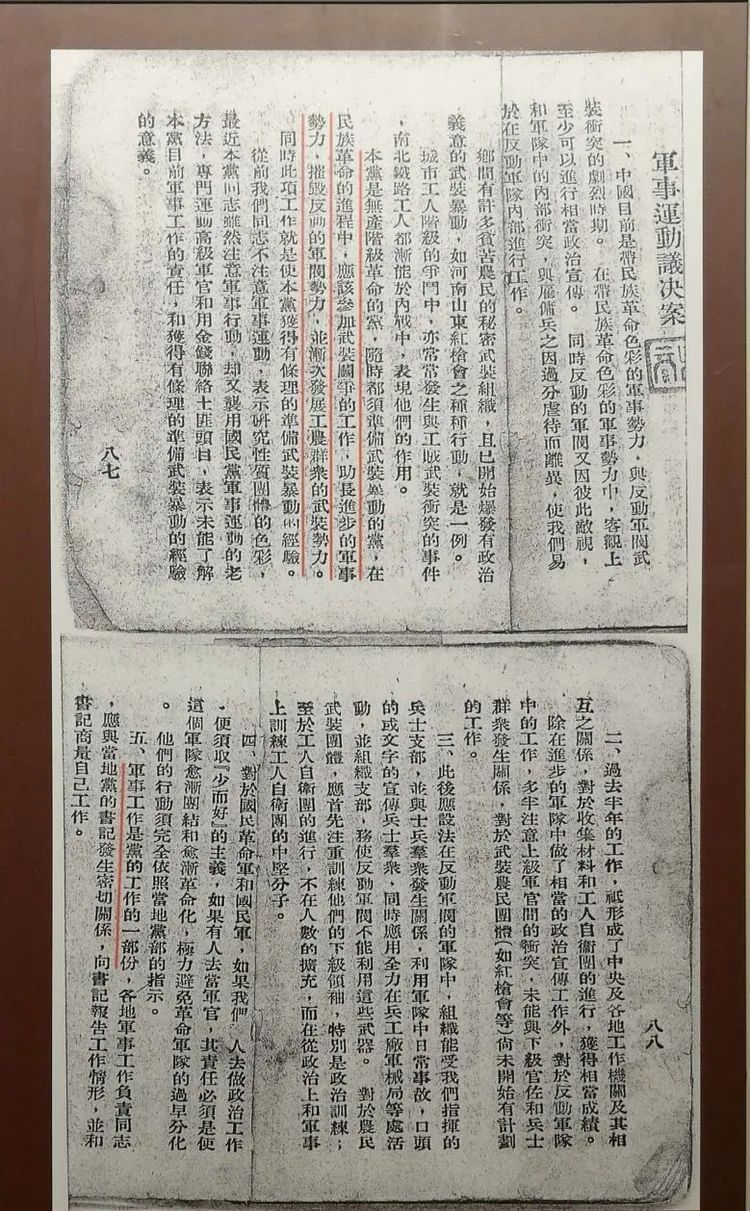 軍事運動議決案
一、中國目前是帶民族革命色彩的軍事勢力，與反動軍閥武
裝衝突的劇烈時期。在帶民族革命色彩的軍事勢力中，客觀上
至少可以進行相當政治宣傳。同時反動的軍閥又因彼此敵視，
和軍隊中的內部衝突，與雇傭兵之因過分虐待而離異，使我們易
於在反動軍隊內部進行工作。
鄉間有許多貧苦農民的秘密武裝組織，且已開始爆發有政治
義意的武裝暴動，如河南山東紅槍會之種種行動，就是一例。
城市工人階級的爭鬥中，亦常常發生與工賊武裝衝突的事件
，南北鐵路工人都漸能於內戰中，表現他們的作用。
本黨是無產階級革命的黨，隨時都須準備武裝暴動的黨，在
民族革命的進程中，應該參加武裝鬭爭的工作，助長進步的軍事
勢力，摧毀反動的軍閥勢力，並漸次發展工農群衆的武裝勢力。
同時此項工作就是使本黨獲得有條理的準備武裝暴動的經驗。
從前我們同志不注意軍事運動，表示研究性質團體的色彩，
最近本黨同志雖然注意軍事行動，却又襲用國民黨軍事運動的老
方法，專門運動高級軍官和用金錢聯絡土匪頭目，表示未能了解
本黨目前軍事工作的責任，和獲得有條理的準備武裝暴動的經驗
的意義。
八七
八八
二、過去半年的工作，祇形成了中央及各地工作機關及其相
互之關係，對於收集材料和工人自衞團的進行，獲得相當成績。
除在進步的軍隊中做了相當的政治宣傳工作外，對於反動軍隊
中的工作，多半注意上級軍官間的衝突，未能與下級官佐和兵士
群衆發生關係，對於武裝農民團體（如紅槍會等）尙未開始有計劃
的工作。
三、此後應設法在反動軍閥的軍隊中，組織能受我們指揮的
兵士支部，並與士兵羣衆發生關係，利用軍隊中日常事故，口頭
的或文字的宣傳兵士羣衆，同時應用全力在兵工廠軍械局等處活
動，並組織支部，務使反動軍閥不能利用這些武器。對於農民
武裝團體，應首先注重訓練他們的下級領袖，特別是政治訓練；
至於工人自衞團的進行，不在人數的擴充，而在從政治上和軍事
上訓練工人自衞團的中堅分子。
四、對於國民革命軍和國民軍，如果我們 人去做政治工作
，便須取『少而好』的主義，如果有人去當軍官，其責任必須是使
這個軍隊愈漸團結和愈漸革命化，極力避免革命軍隊的過早分化
。他們的行動須完全依照當地黨部的指示。
五、軍事工作是黨的工作的一部份，各地軍事工作負責同志
，應與當地黨的書記發生密切關係，向書記報告工作情形，並和
書記商量自己工作。